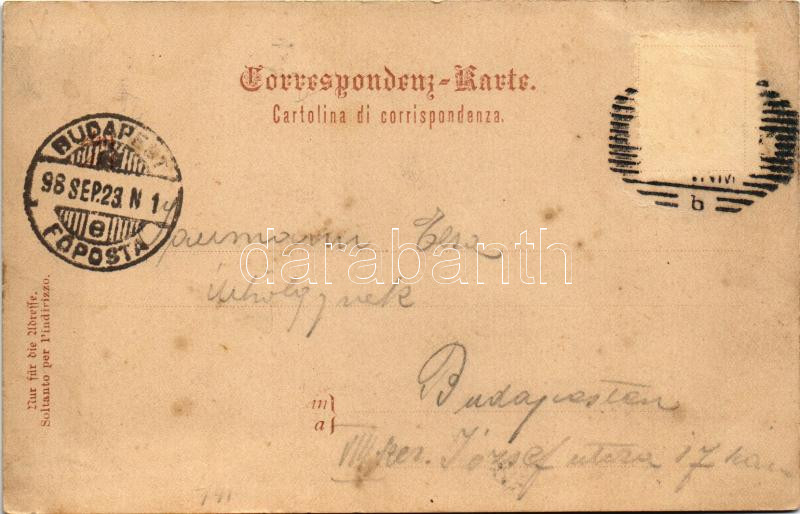 Correspondenz-Karte.
Cartolina di corrispondenza.
BUDAPEST
98 SEP. 23. N 1
e
FŐPOSTA
b
Elza
úrhölgynek
Budapesten
VIII ker. József utcza 17 szám
m
a
Nur für die Adresse.
Soltanto per l'indirizzo.
darabanth